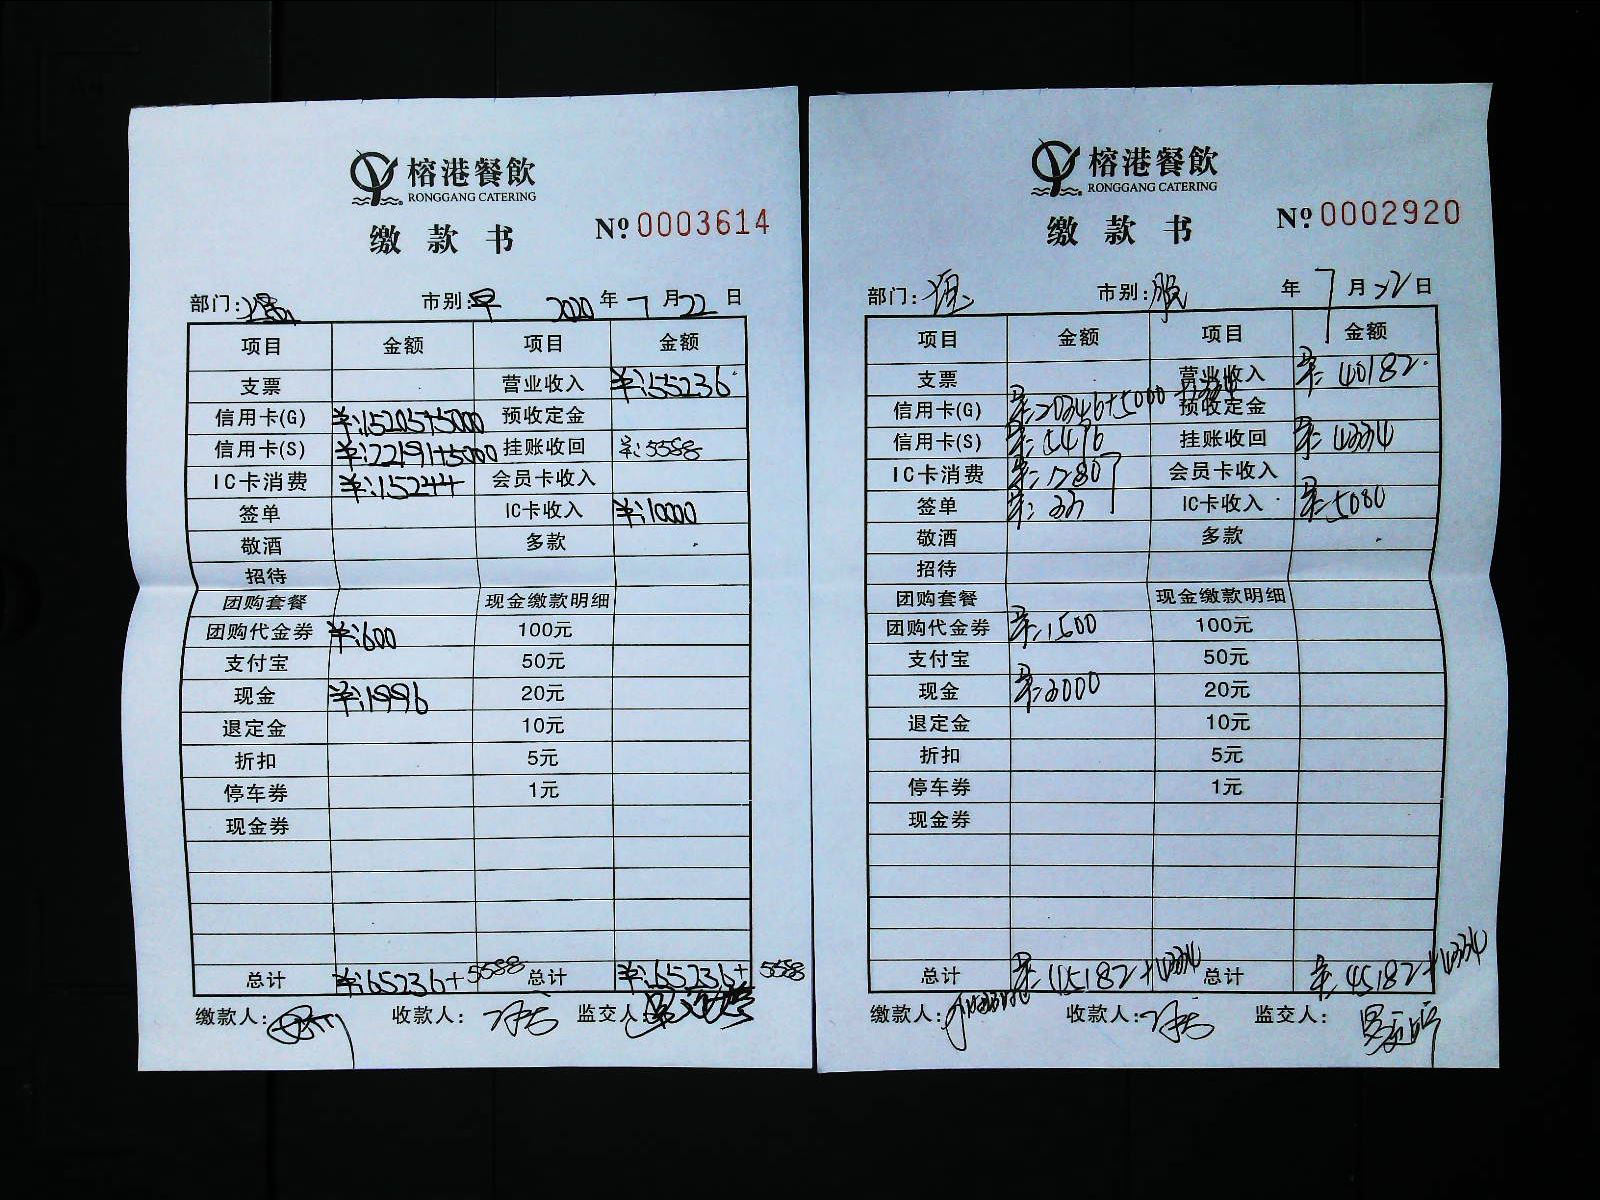 榕港餐飲
RONGGANG CATERING
缴款书
№ 0003614
部门: 市别:早 2020年7月22日
项目 金额 项目 金额
支票 营业收入 ¥:55236
信用卡(G) ¥:15205+5000 预收定金
信用卡(S) ¥:22191+5000 挂账收回 ¥:5588
IC卡消费 ¥:15244 会员卡收入
签单 IC卡收入 ¥:10000
敬酒 多款
招待
团购套餐 现金缴款明细
团购代金券 ¥:600 100元
支付宝 50元
现金 ¥:1996 20元
退定金 10元
折扣 5元
停车券 1元
现金券
总计 ¥:65236+5588 总计 ¥:65236+5588
缴款人: 收款人: 监交人:
榕港餐飲
RONGGANG CATERING
缴款书
№ 0002920
部门: 市别: 年7月22日
项目 金额 项目 金额
支票 营业收入 ¥:40182
信用卡(G) ¥:20346+5000+4334 预收定金
信用卡(S) 挂账收回 ¥:4334
IC卡消费 ¥:12807 会员卡收入
签单 ¥:33 IC卡收入 ¥:5000
敬酒 多款
招待
团购套餐 现金缴款明细
团购代金券 ¥:1500 100元
支付宝 50元
现金 20元
退定金 10元
折扣 5元
停车券 1元
现金券
总计 ¥:45182+4334 总计 ¥:45182+4334
缴款人: 收款人: 监交人: